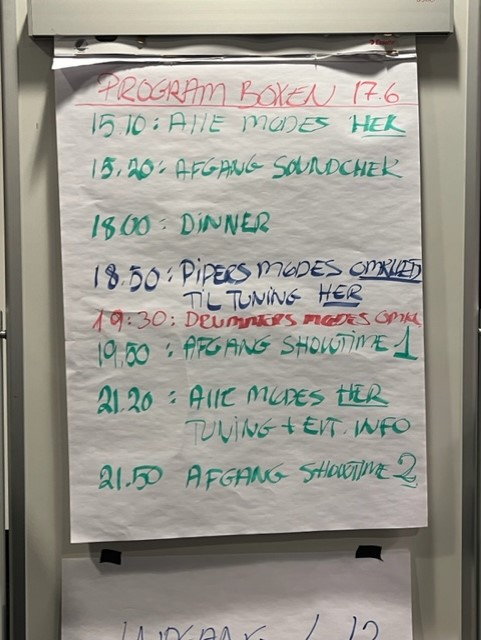 PROGRAM BOXEN 17.6
15.10: Alle mødes HER
15.20: AFGANG SOUNDCHEK
18.00: DINNER
18.50: PIPERS MØDES OMKLÆDT
TIL TUNING HER
19:30: DRUMMERS MØDES OMKL
19.50: AFGANG SHOWTIME 1
21.20: Alle mødes HER
TUNING + EVT. INFO
21.50 AFGANG SHOWTIME 2